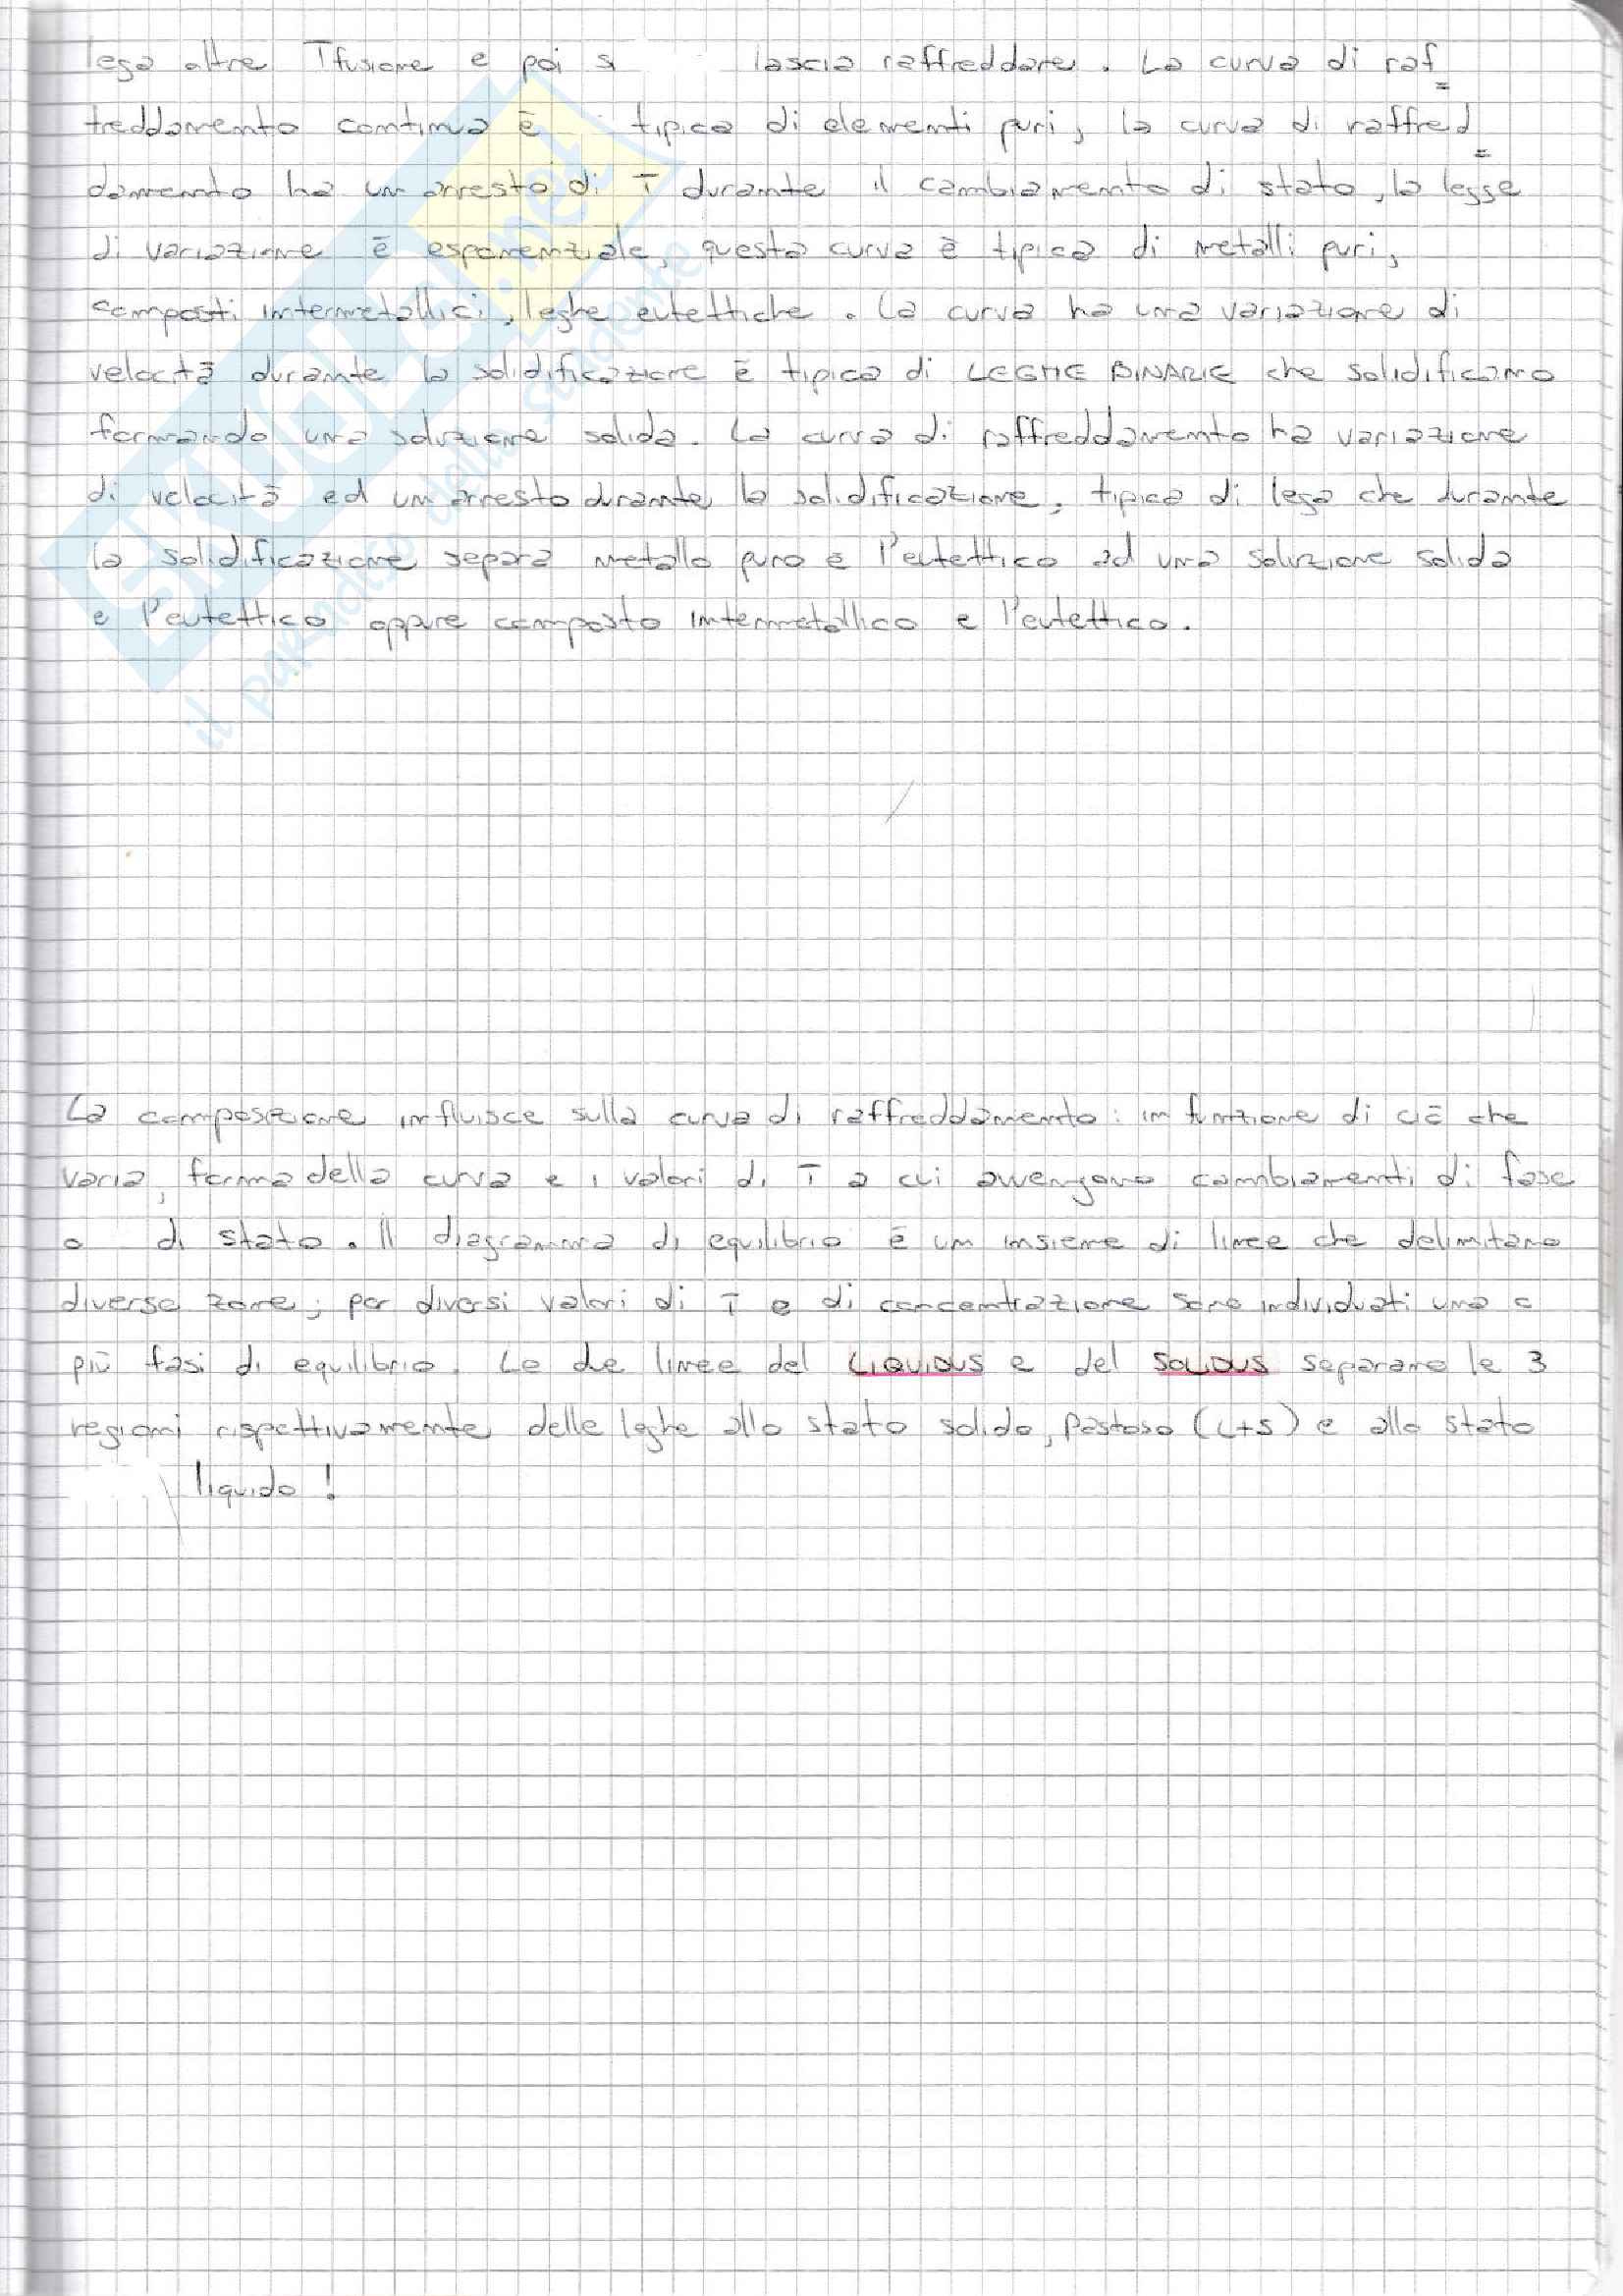 lega oltre Tfusione e poi si lascia raffreddare. La curva di raf
freddamento continua è tipica di elementi puri, la curva di raffred
damento ha un arresto di T durante il cambiamento di stato, la legge
di variazione è esponenziale, questa curva è tipica di metalli puri,
composti intermetallici, leghe eutettiche. La curva ha una variazione di
velocità durante la solidificazione è tipica di LEGHE BINARIE che solidificano
formando una soluzione solida. La curva di raffreddamento ha variazione
di velocità ed un arresto durante la solidificazione, tipica di lega che durante
la solidificazione separa metallo puro e l'eutettico ad una soluzione solida
e l'eutettico oppure composto intermetallico e l'eutettico.
La composizione influisce sulla curva di raffreddamento: in funzione di ciò che
varia, forma della curva e i valori di T a cui avvengono cambiamenti di fase
o di stato. Il diagramma di equilibrio è un insieme di linee che delimitano
diverse zone; per diversi valori di T e di concentrazione sono individuati una o
più fasi di equilibrio. Le due linee del LIQUIDUS e del SOLIDUS separano le 3
regioni rispettivamente delle leghe allo stato solido, pastoso (L+S) e allo stato
liquido!
SKUOLA.net
il paradiso dello studente